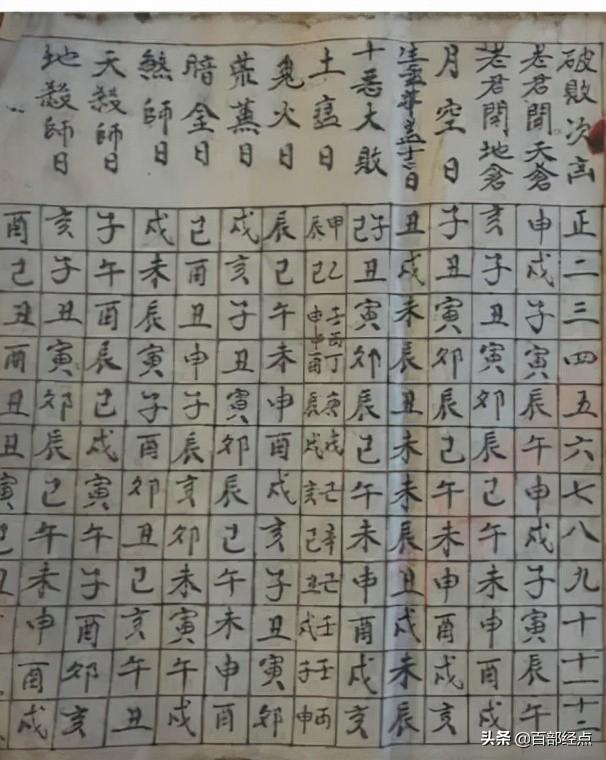 破敗次 正二三四五六七八九十十一十二
老君開天倉 申戌子寅辰午申戌子寅辰午
老君開地倉 亥子丑寅卯辰巳午未申酉戌
月空日 子丑寅卯辰巳午未申酉戌亥
日 丑戌未辰丑未未辰丑戌未辰
十惡大敗 子巳丑寅卯辰巳午未申酉戌亥
土瘟日 甲辰乙巳庚辰戊戌辛巳壬戌壬子丙申
鬼火日 辰巳午未申酉戌亥子丑寅卯
荒蕪日 戌亥子丑寅卯辰巳午未申酉
暗金日 巳酉丑申子辰亥卯未寅午戌
煞師日 戌未辰寅子酉卯丑巳亥午丑
天殺師日 子午酉辰巳戌寅午子酉卯亥
地殺師日 亥子丑寅卯辰巳午未申酉戌
酉巳丑酉丑丑寅
头条 @百部经点